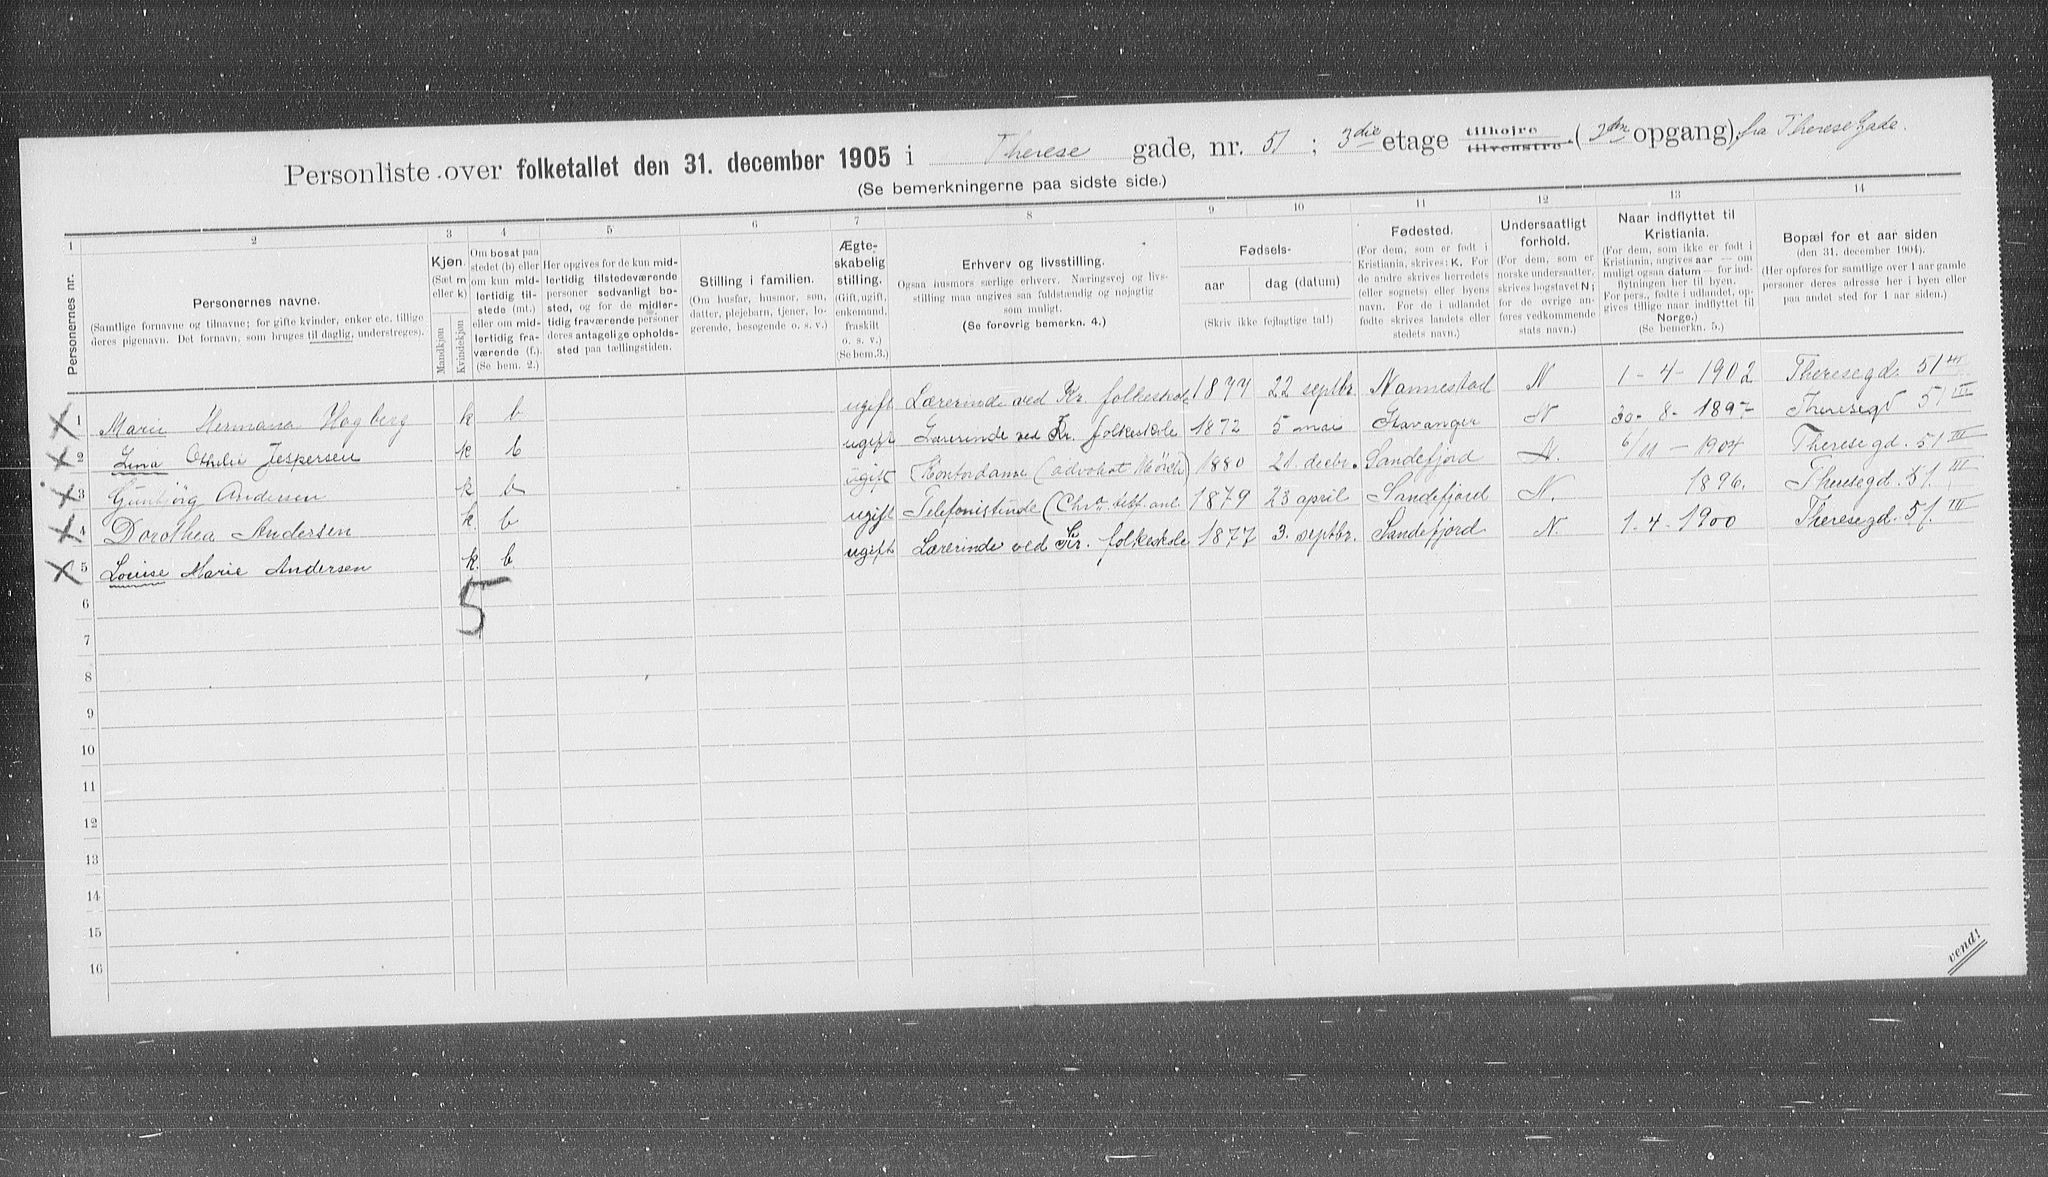 Personliste over folketallet den 31. december 1905 i Therese gade, nr. 51; 3die etage tilhøjre tilvenstre (2den opgang) fra Therese Gade.
(Se bemerkningerne paa sidste side.)
1 2 3 4 5 6 7 8 9 10 11 12 13 14
Personernes nr.
Personernes navne.
(Samtlige fornavne og tilnavne; for gifte kvinder, enker etc. tillige
deres pigenavn. Det fornavn, som bruges til daglig, understreges).
Kjøn
(Sæt m
eller k)
Mandkjøn
Kvindekjøn
Om bosat paa
stedet (b) eller
om kun mid-
lertidig til-
stede (mt.)
eller om mid-
lertidig fra-
værende (f.).
(Se bem. 2.)
Her opgives for de kun mid-
lertidig tilstedeværende
personer sedvanligt bo-
sted, og for de midler-
tidig fraværende personer
deres antagelige opholds-
sted paa tællingstiden.
Stilling i familien.
(Om husfar, husmor, søn,
datter, plejebarn, tjener, lo-
gerende, besøgende o. s. v.)
Ægte-
skabelig
stilling.
(Gift, ugift,
enkemand,
fraskilt
o. s. v.)
(Se bem.3.)
Erhverv og livsstilling.
Ogsaa husmors særlige erhverv. Næringsvej og livs-
stilling maa angives saa fuldstændig og nøjagtig
som muligt.
(Se forøvrig bemerkn. 4.)
Fødsels-
aar
dag (datum)
(Skriv ikke fejlagtige tal!)
Fødested.
(For dem, som er født i
Kristiania, skrives: K. For
de andre skrives herredets
(eller sognets) eller byens
navn. For de i udlandet
fødte skrives landets eller
stedets navn.)
Undersaatligt
forhold.
(For dem, som er
norske undersaatter,
skrives bogstavet N;
for de øvrige an-
føres vedkommende
stats navn.)
Naar indflyttet til
Kristiania.
(For dem, som ikke er født i
Kristiania, angives aar — om
muligt ogsaa datum — for ind-
flytningen her til byen.
For pers., fødte i udlandet, op-
gives tillige naar indflyttet til
Norge.)
(Se bemerkn. 5.)
Bopæl for et aar siden
(den 31. december 1904).
(Her opføres for samtlige over 1 aar gamle
personer deres adresse her i byen eller
paa andet sted for 1 aar siden.)
1 Marie Hermana Hagberg k b ugift Lærerinde ved Kr. folkeskole 1877 22 septbr. Nannestad N 1-4-1902 Theresegd. 51 III
2 Lina Othilie Jespersen k b ugift Lærerinde ved Kr. folkeskole 1872 5 mai Stavanger N 30-8-1897 Theresegd 51 III
3 Gunbjørg Andersen k b ugift Kontordame (advokat Mørch) 1880 21. decbr. Sandefjord N. 6/11-1904 Theresegd. 51 III
4 Dorothea Andersen k. b ugift Telefonistinde 1879 23 april Sandefjord N. 1896. Theresegd. 51. III
5 Louise Marie Andersen k. b. ugift Lærerinde ved Kr. folkeskole 1877 3. septbr. Sandefjord N. 1-4-1900 Theresegd. 51. III
6 5
7
8
9
10
11
12
13
14
15
16
vend!